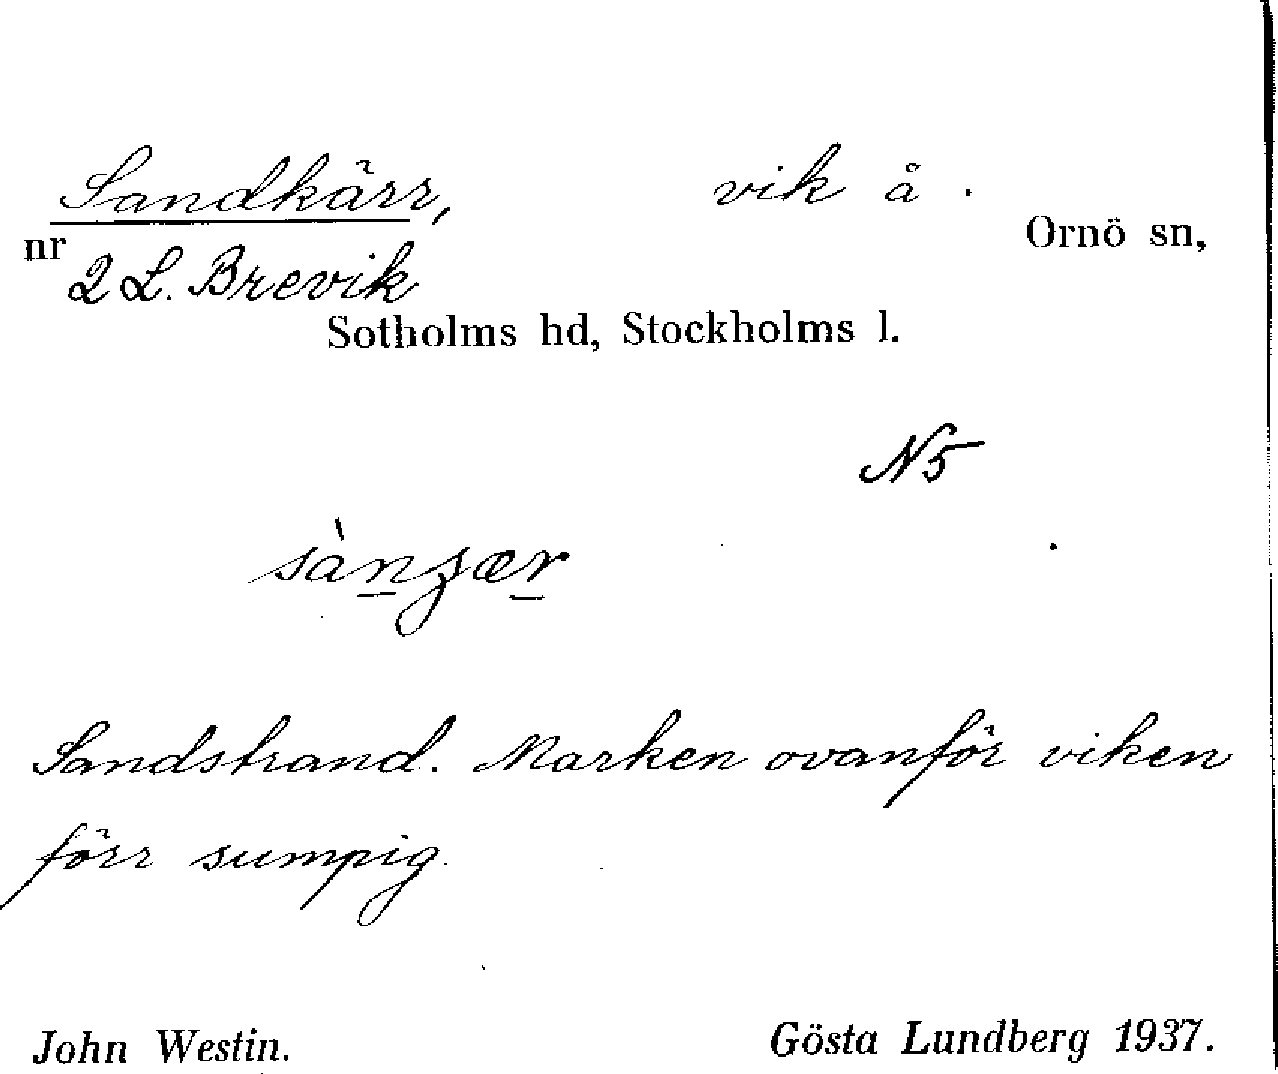 Sandkärr, vik å
Ornö sn,
nr 2 L. Brevik
Sotholms hd, Stockholms l.
N5
Sandstrand. Marken ovanför viken
förr sumpig.
John Westin. Gösta Lundberg 1937.